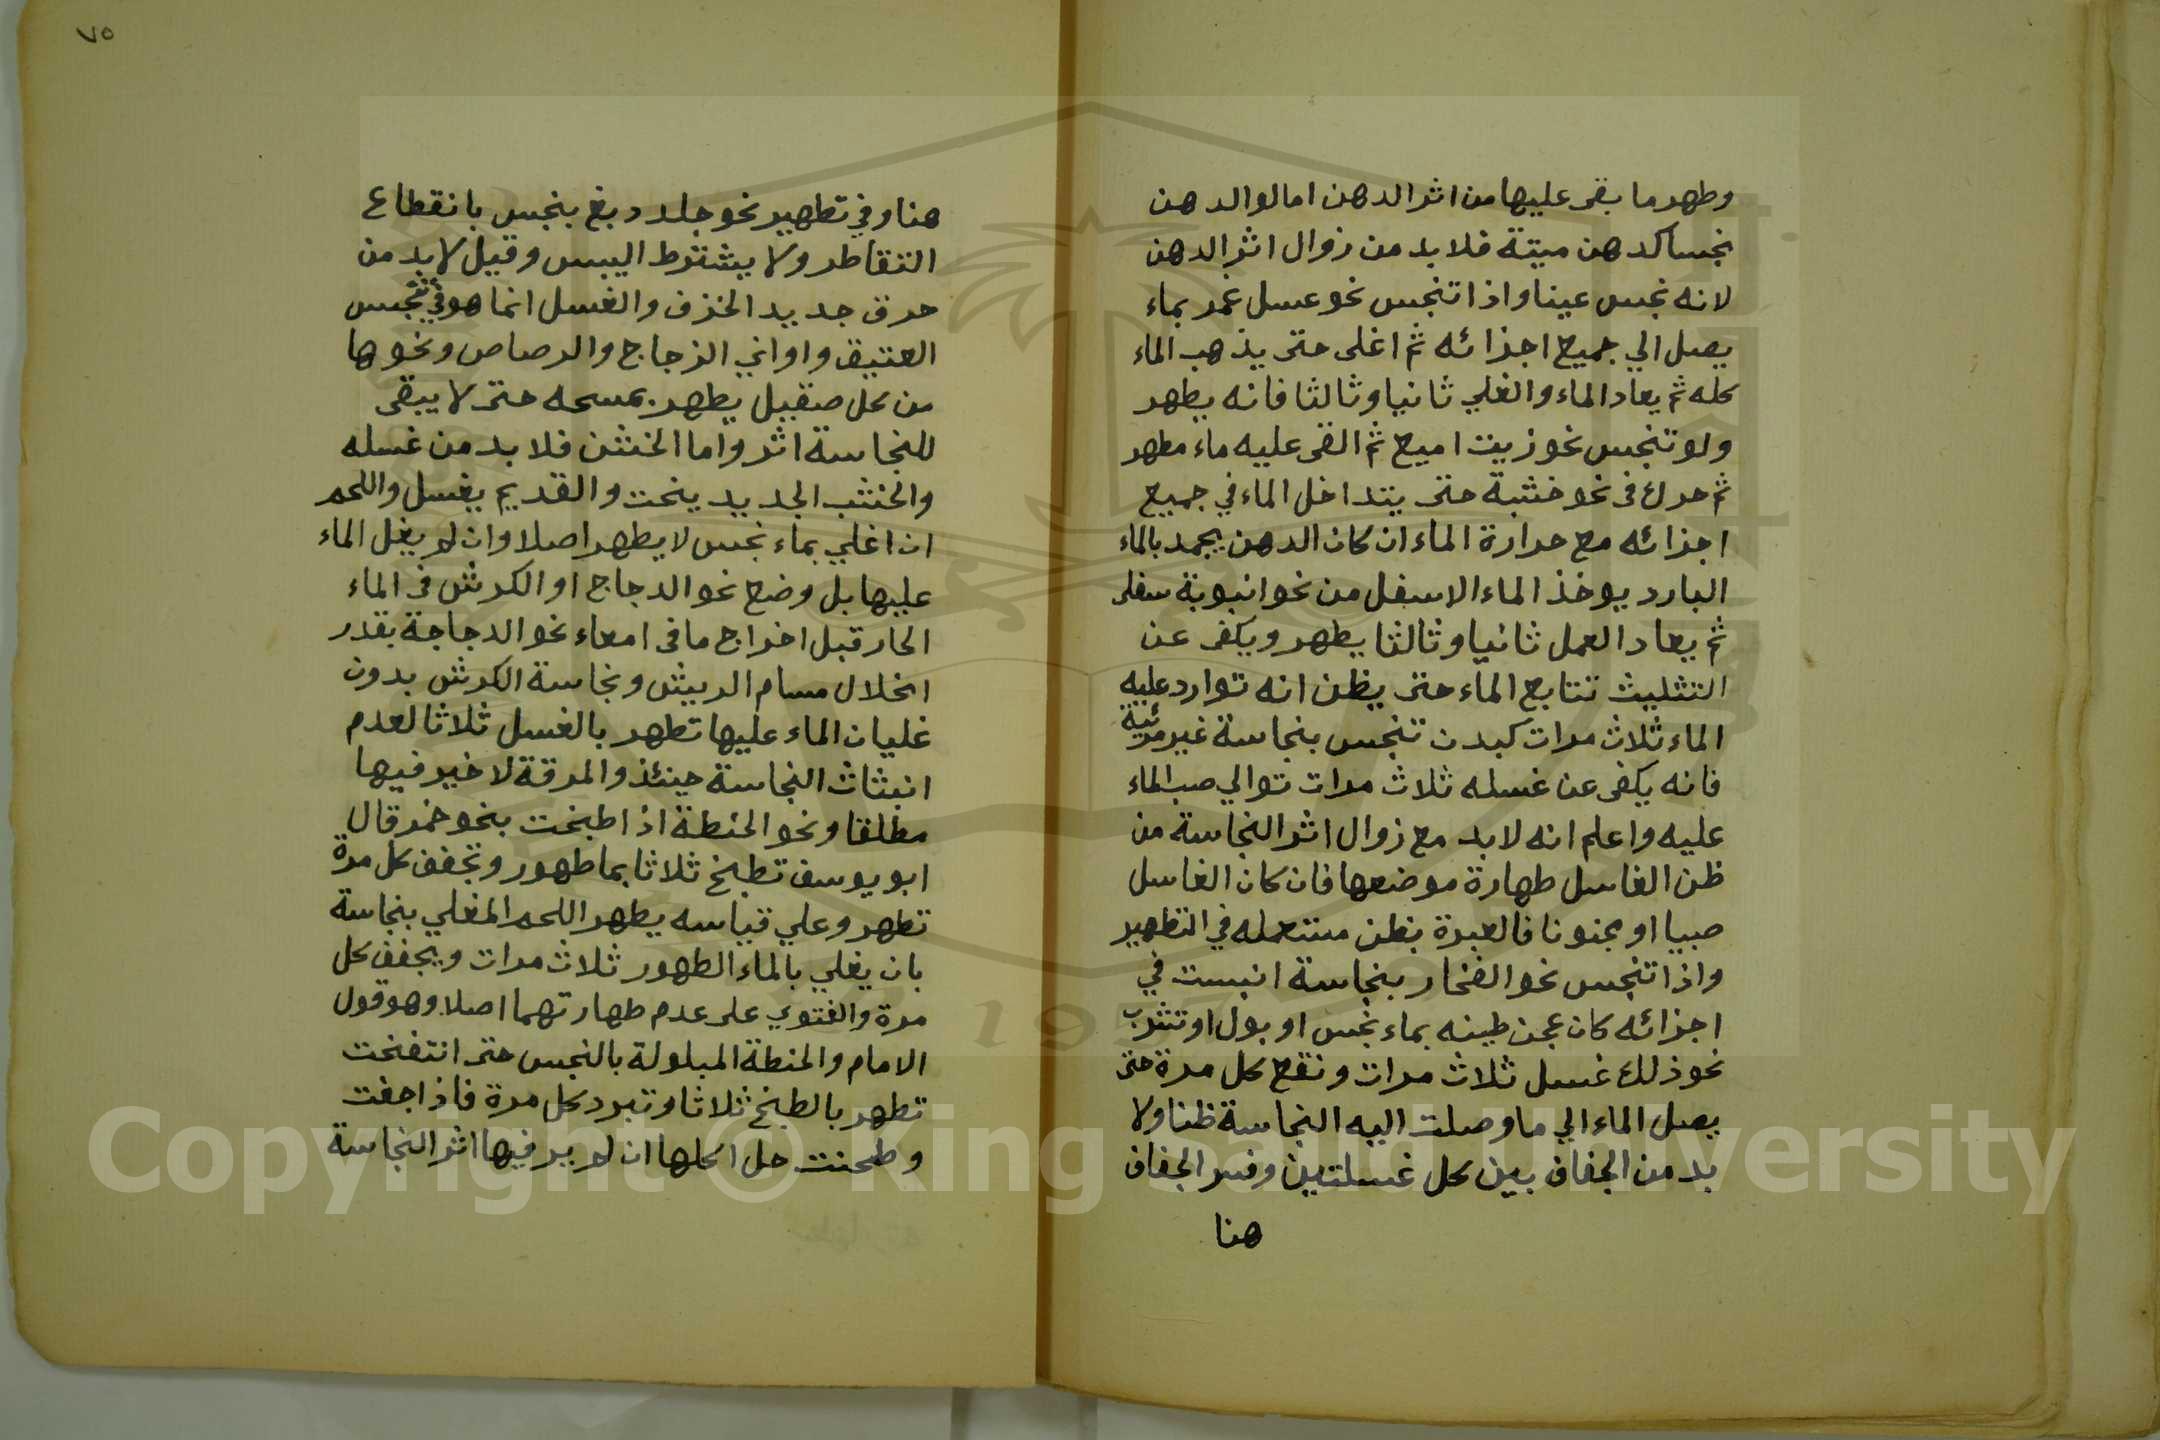 وطهر ما بقى عليها من اثر الدهن امالوالدهن
نجسا كدهن ميتة فلا بد من زوال اثر الدهن
لانه نجس عينا واذا تنجس نحو عسل غمر بماء
يصل الي جميع اجزائه ثم اغلى حتى يذهب الماء
كله ثم يعاد الماء والغلي ثانيا وثالثا فانه يطهر
ولو تنجس نحو زيت اميع ثم القى عليه ماء مطهر
ثم حرك فى نحو خشبة حتى يتداخل الماء في جميع
اجزائه مع حرارة الماء ان كان الدهن يجمد بالماء
البارد يوخذ الماء الاسفل من نحو انبوبة سفلى
ثم يعاد العمل ثانيا وثالثا يطهر ويكفى عن
التثليث تتابع الماء حتى يظن انه توارد عليه
الماء ثلاث مرات كبدن تنجس بنجاسة غير مرئية
فانه يكفى عن غسله ثلاث مرات توالي صب الماء
عليه واعلم انه لابد مع زوال اثر النجاسة من
ظن الغاسل طهارة موضعها فان كان الغاسل
صبيا او مجنونا فالعبرة بظن مستعمله في التطهير
واذا تنجس نحو الفخار بنجاسة انبست في
اجزائه كان عجن طينه بماء نجس او بول او تشرب
نحو ذلك غسل ثلاث مرات ونقع كل مرة حتى
يصل الماء الي ما وصلت اليه النجاسة ظنا ولا
بد من الجفاف بين كل غسلتين وفسر الجفاف
هنا
٧٥
هنا وفي تطهير نحو جلد دبغ بنجس بانقطاع
التقاطر ولا يشترط اليبس وقيل لابد من
حرق جديد الخزف والغسل انما هو في تنجس
العتيق واواني الزجاج والرصاص ونحوها
من كل صقيل يطهر بمسحه حتى لا يبقى
للنجاسة اثر واما الخشن فلا بد من غسله
والخشب الجديد ينحت والقديم يغسل واللحم
ان اغلي بماء نجس لا يطهر اصلا وان لم يغل الماء
عليها بل وضع نحو الدجاج او الكرش فى الماء
الحار قبل اخراج ما فى امعاء نحو الدجاجة بقدر
انحلال مسام الريش ونجاسة الكرش بدون
غليان الماء عليها تطهر بالغسل ثلاثا لعدم
انبثاث النجاسة حينئذ والمرقة لا خير فيها
مطلقا ونحو الحنطة اذا طبخت بنحو خمر قال
ابو يوسف تطبخ ثلاثا بما طهور وتجفف كل مرة
تطهر وعلي قياسه يطهر اللحم المغلي بنجاسة
بان يغلي بالماء الطهور ثلاث مرات ويجفف كل
مرة والفتوي على عدم طهارتهما اصلا وهو قول
الامام والحنطة المبلولة بالنجس حتى انتفخت
تطهر بالطبخ ثلاثا وتبرد كل مرة فاذا جفت
وطحنت حل اكلها ان لم ير فيها اثر النجاسة
Copyright © King Saud University